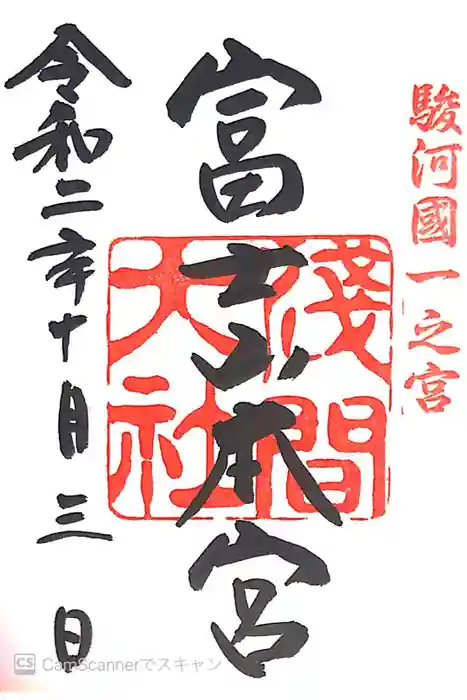 駿河國一之宮
富士山本宮
淺間大社
令和二年十月三日
CS CamScannerでスキャン